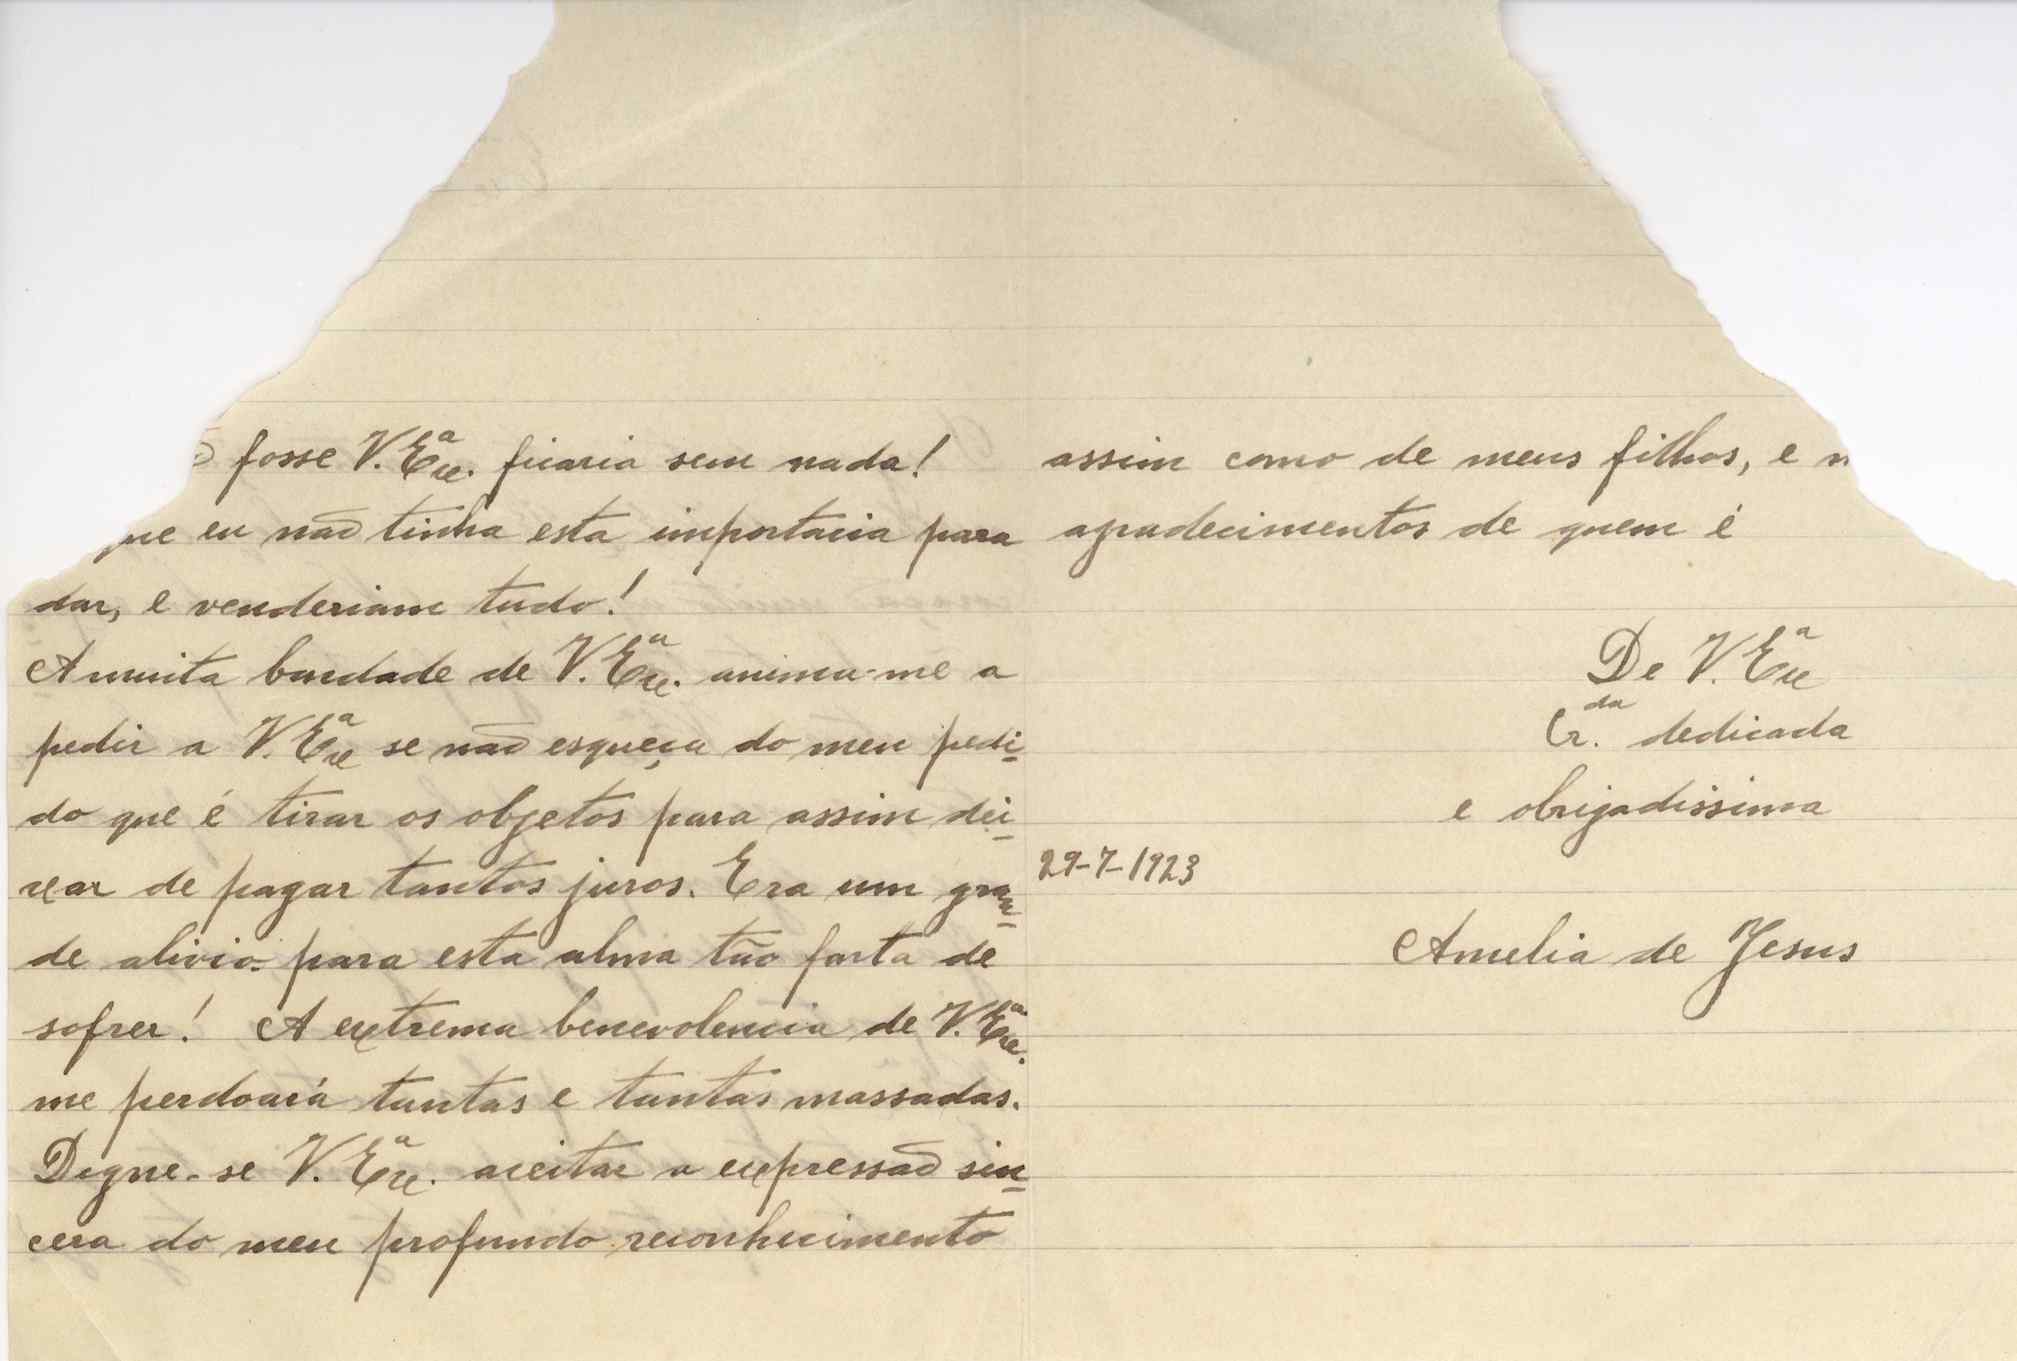 fosse V. Exc.ª ficaria sem nada!
que eu não tinha esta importacia para
dar, e venderiam tudo!
A muita bondade de V. Exc.ª anima-me a
pedir a V. Exc.ª se não esqueça do meu pedi-
do que é tirar os objetos para assim dei-
xar de pagar tantos juros. Era um gran-
de alivio para esta alma tão farta de
sofrer! A extrema benevolencia de V. Exc.ª
me perdoará tantas e tantas massadas.
Digne-se V. Exc.ª aceitar a expressão sin-
cera do meu profundo reconhecimento
assim como de meus filhos, e
agradecimentos de quem é
De V. Exc.ª
Cr.da dedicada
e obrigadissima
29-7-1923
Amelia de Jesus